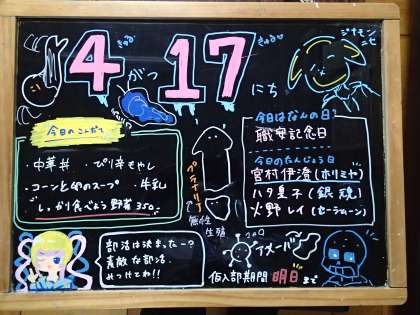 4がつ17にち
今日のこんだて
・中華丼 ・ぴり辛もやし
・コーンと卵のスープ ・牛乳
しっかり食べよう野菜350g
プラナリア
無性
生殖
今日はなんの日
職安記念日
今日のたんじょう日
宮村伊澄(ホリミヤ)
火野レイ(セーラームーン)
部活は決まったー?
素敵な部活、
みつけてね!!
アメーバ
仮入部期間 明日 まで